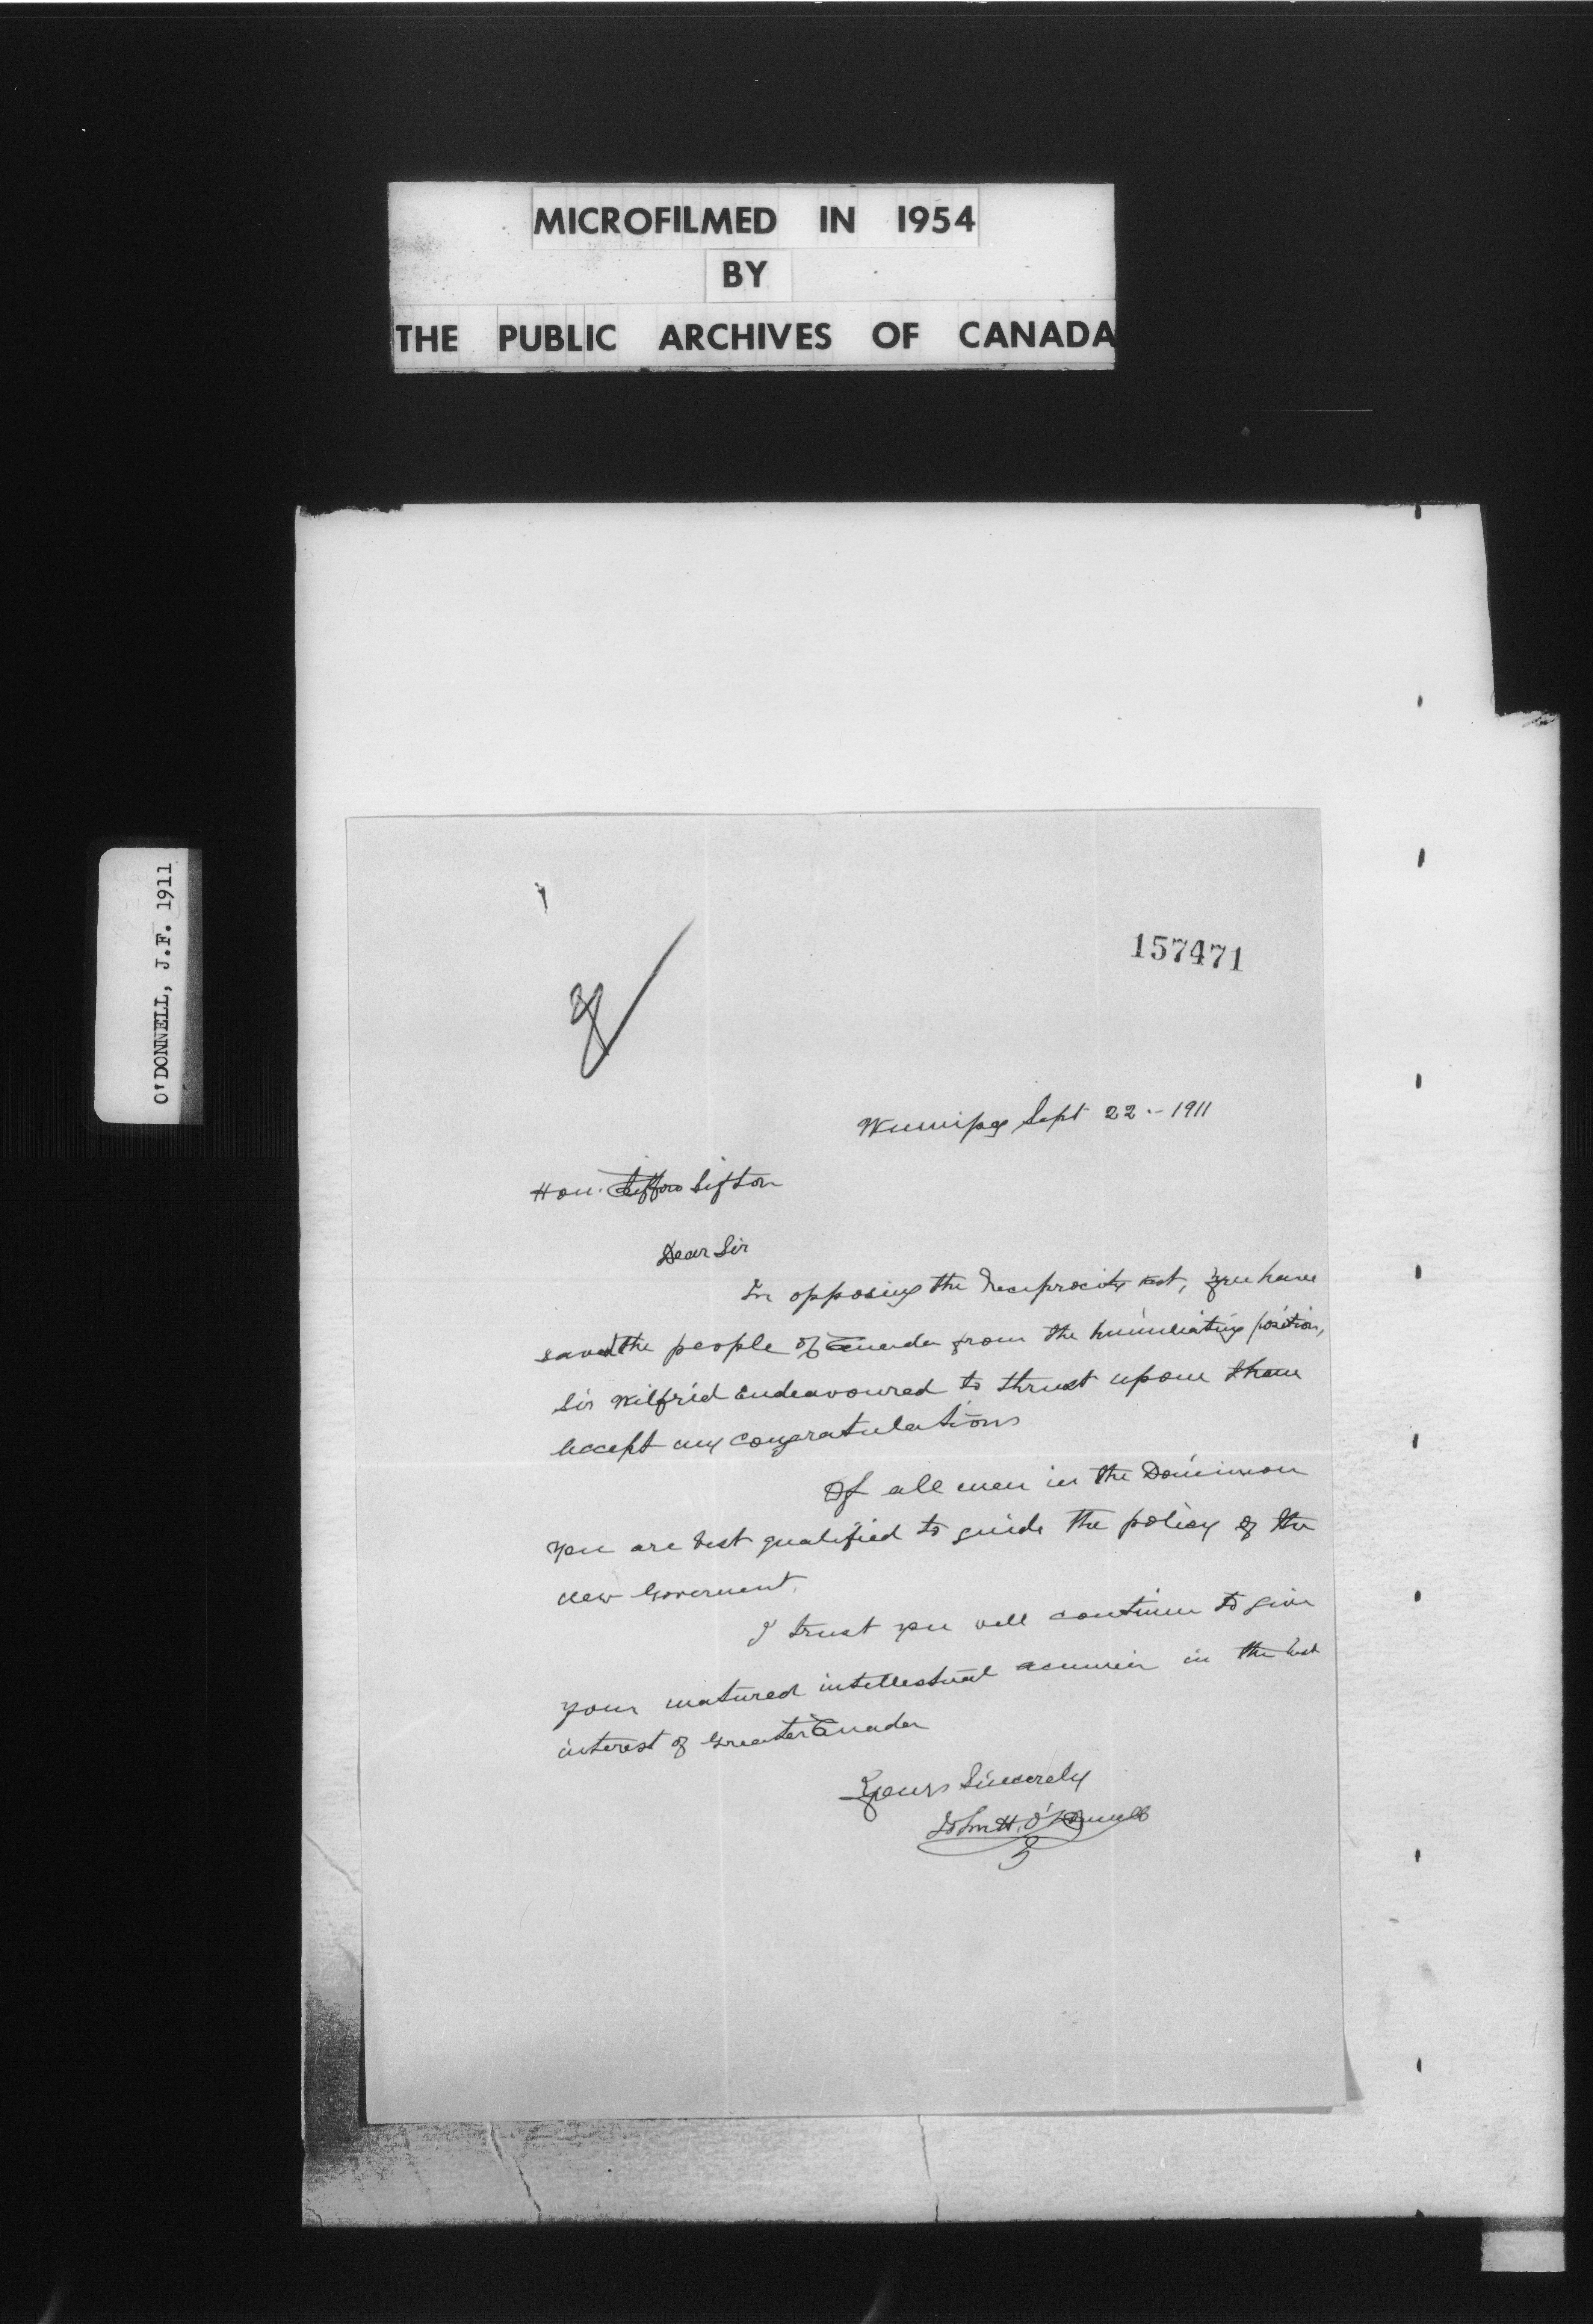 MICROFILMED IN 1954
BY
THE PUBLIC ARCHIVES OF CANADA
O'DONNELL, J.F. 1911
157471
Winnipeg Sept 22 - 1911
Hon. Clifford Sifton
Dear Sir
In opposing the Reciprocity act, you have
saved the people of Canada from the humiliating position,
Sir Wilfrid Endeavoured to thrust upon them
Accept my congratulations
Of all men in the Dominion
you are best qualified to guide the policy of the
new Goverment.
I trust you will continue to give
your matured intellectual acumen in the best
interest of Greater Canada
Yours Sincerely
John H. O'Donnell